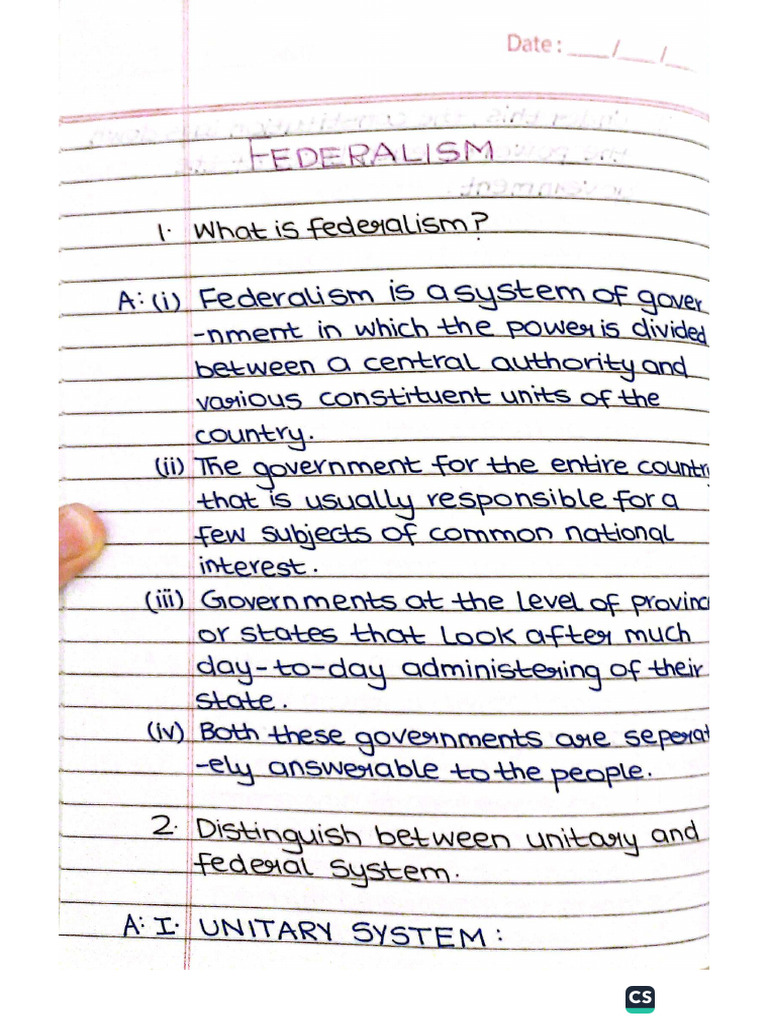 Date: ___/___/__
FEDERALISM
1. What is federalism?
A: (i) Federalism is a system of gover
-nment in which the power is divided
between a central authority and
various constituent units of the
country.
(ii) The government for the entire countr
that is usually responsible for a
few subjects of common national
interest.
(iii) Governments at the level of provinc
or states that look after much
day-to-day administering of their
state.
(iv) Both these governments are seperat
-ely answerable to the people.
2. Distinguish between unitary and
federal system.
A: I. UNITARY SYSTEM:
CS